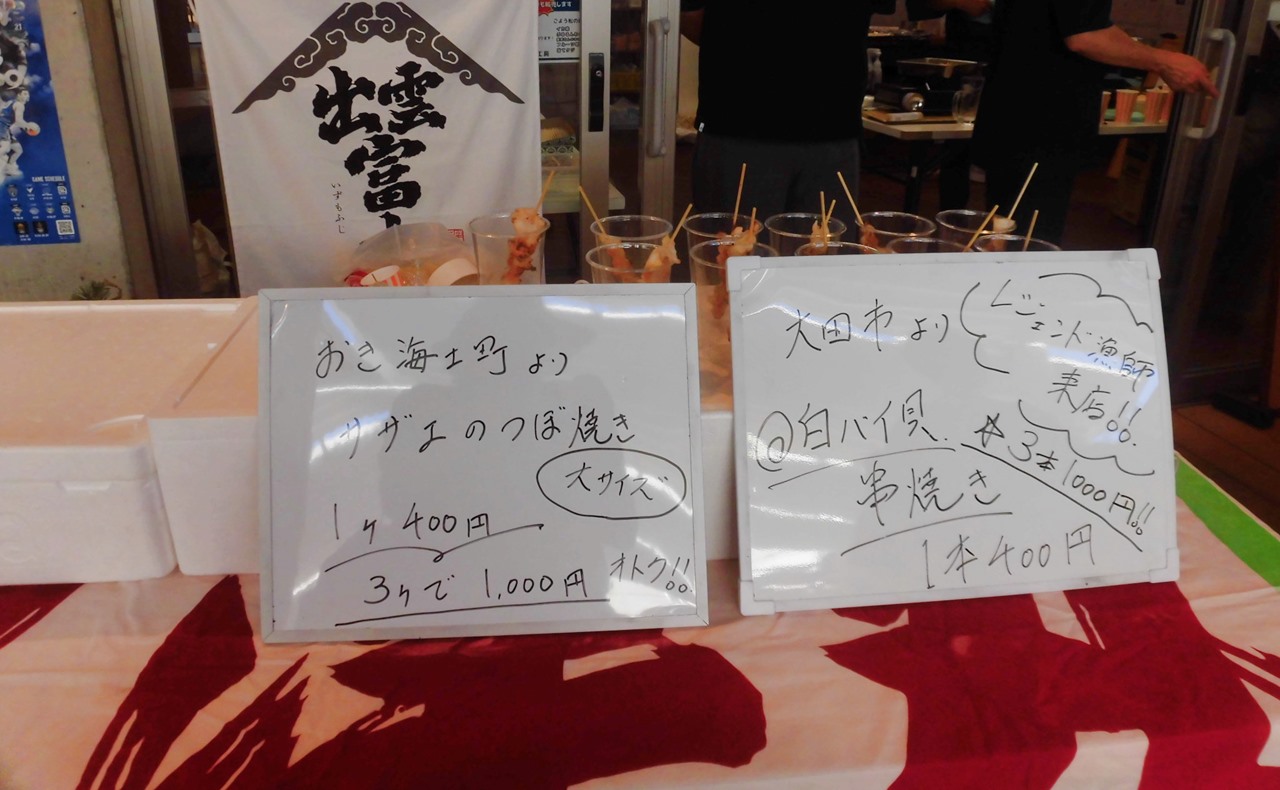 出雲富
いずもふじ
GAME SCHEDULE
おき海士町より
サザエのつぼ焼き
大サイズ
1ヶ400円
3ヶで 1,000円 オトク!!
大田市より
レジェンド漁師
来店!!
@白バイ貝
串焼き
☆3本1000円!!
1本400円